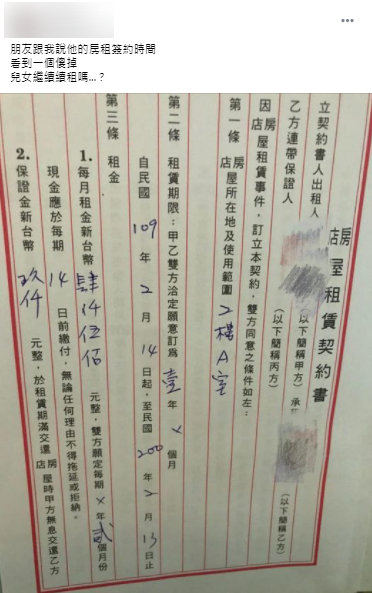 朋友跟我說他的房租簽約時間
看到一個傻掉
兒女繼續續租嗎...？
店房屋租賃契約書
立契約書人出租人（以下簡稱甲方）承
（以下簡稱乙方）
乙方連帶保證人（以下簡稱丙方）
因店房屋租賃事件，訂立本契約，雙方同意之條件如左：
第一條 店房屋所在地及使用範圍 2樓A室
第二條 租賃期限：甲乙雙方洽定願意訂為壹年×個月
自民國109年2月14日起，至民國200年2月13日止
第三條 租金
1.每月租金新台幣肆仟伍佰元整，雙方願定每期×年貳個月份
現金應於每期14日前繳付，無論任何理由不得拖延或拒納。
2.保證金新台幣玖仟元整，於租賃期滿交還店房屋時甲方無息交還乙方